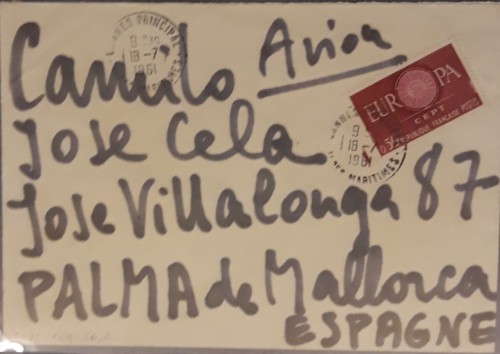 Camilo
Avion
Jose Cela
Jose Villalonga 87
PALMA de Mallorca
ESPAGNE
CANNES PRINCIPAL
18-7
1961
MARITIMES
EUROPA
CEPT
REPUBLIQUE FRANÇAISE POSTES
18
1961
MARITIMES